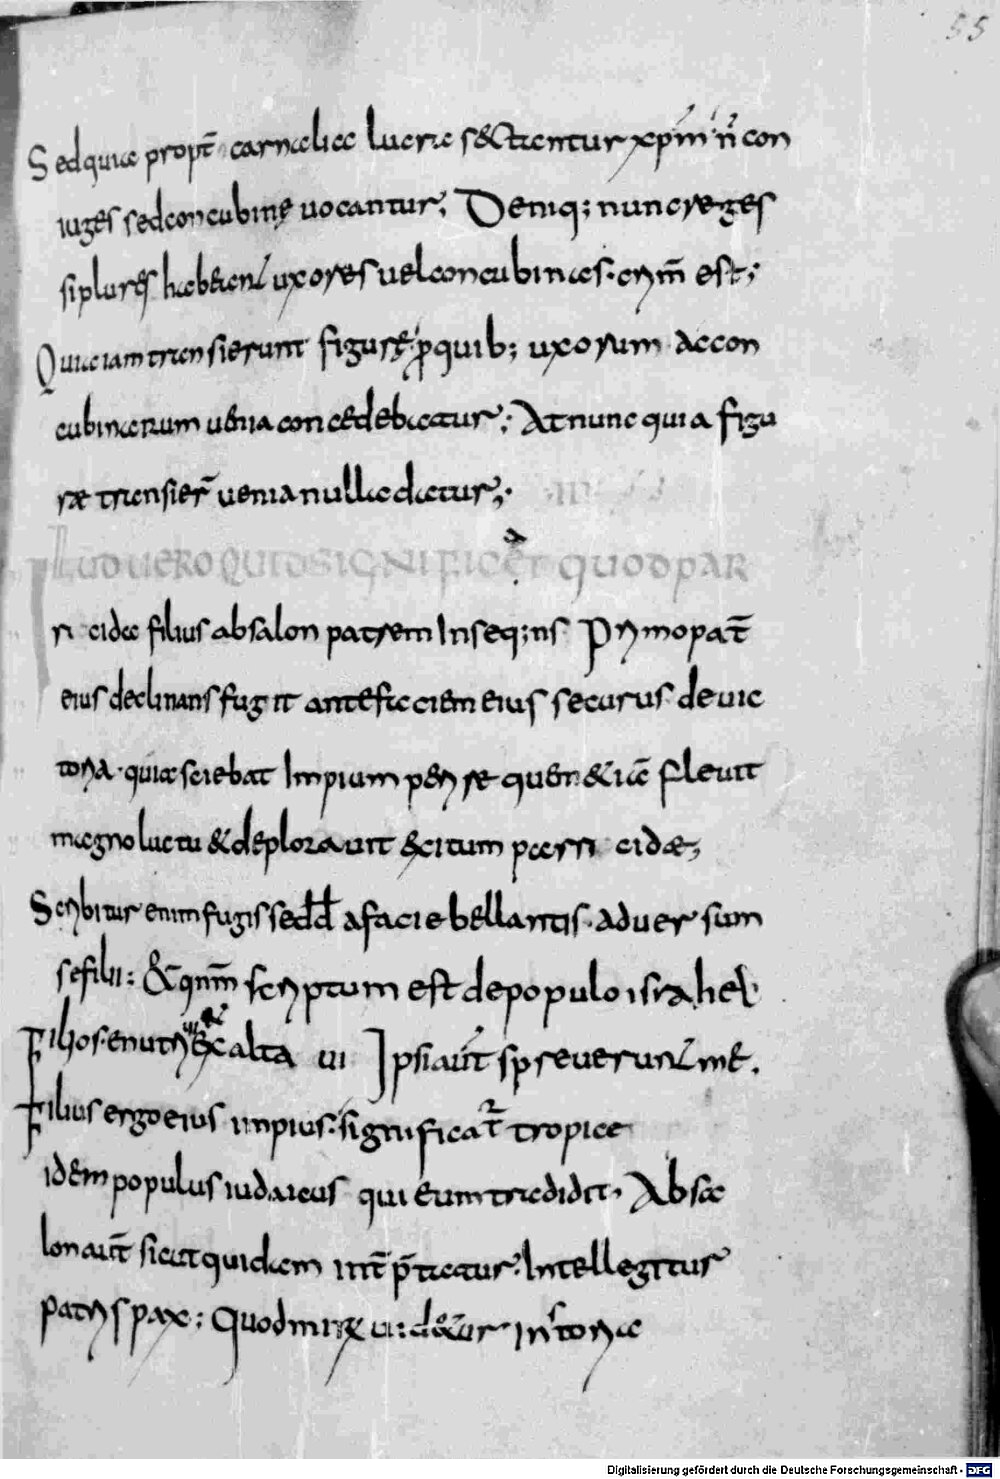 55
Sedquia propt̄ carnalia lucra sectentur xp̄m n̄ con
iuges sedconcubinę uocantur; Deniq; nunc reges
siplures habeant uxores uelconcubinas. crim̄ est;
Quia iam transierunt figurę pro quib; uxorum accon
cubinarum uenia concedebatur; At nunc quia figu
ræ transier̄ uenia nulla datur;
Illud uero quid significat quod par
ricida filius absalon patrem Inseq;ns Primo pat̄
eius declinans fugit antefaciem eius securus de uic
toria. quia sciebat Impium perire quem & iā fleuit
magno luctu & deplorauit exitum parricidæ;
Scribitur enim fugisse dd̄ afacie bellantis. aduersum
se filii: & qnm̄ scriptum est depopulo israhel
Filios. enutriui & exaltaui Ipsi aut̄ spreuerunt me.
Filius ergo eius impius. significat̄ tropice
idem populus iudaicus qui eum tradidit, Absa
lon aut̄ sicut quidam int̄p̄tatur. Intellegitur
patris pax; Quod mirū ui: d&ur In storia
Digitalisierung gefördert durch die Deutsche Forschungsgemeinschaft - DFG